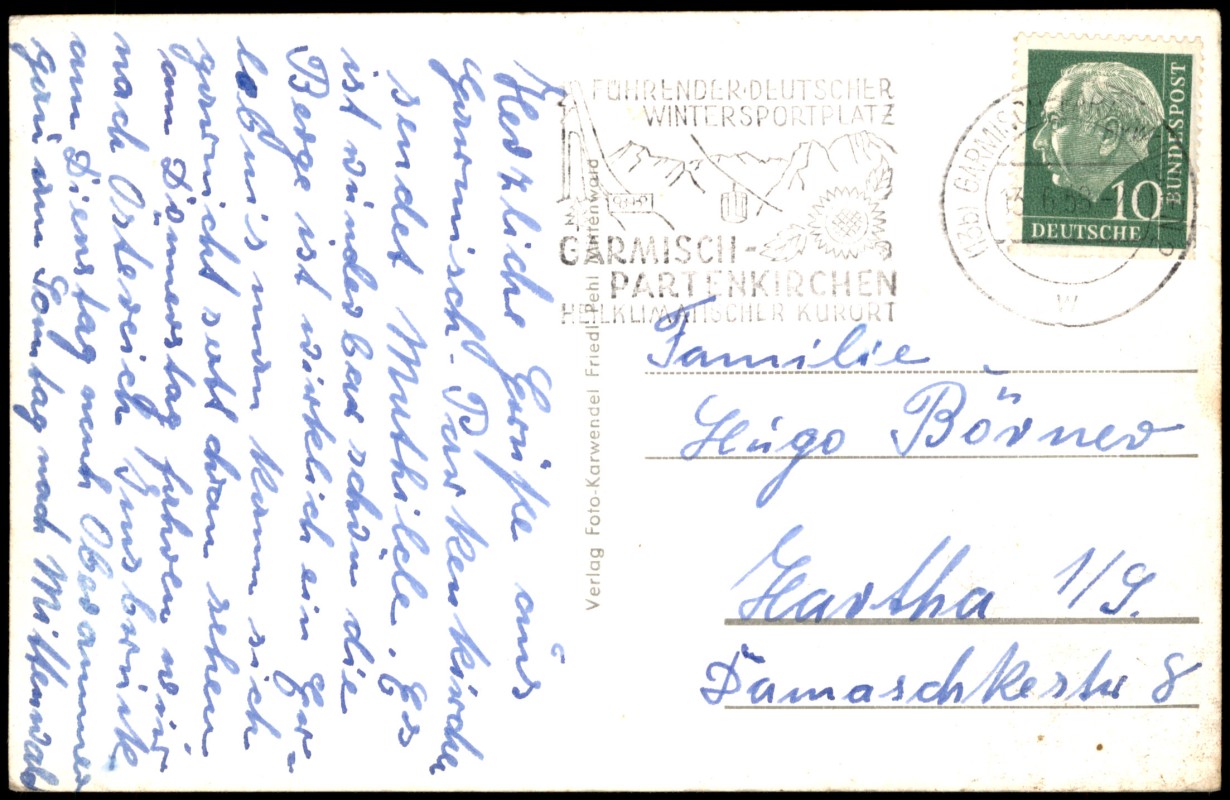 Herzliche Grüße aus
Garmisch-Partenkirchen
sendet Muthilde. Es
ist wunderber schön die
Berge ist wirklich ein Er-
lebnis man kann sich
garnicht satt dran sehen
am Donnerstag fahren wir
nach Östereich Insbruk
am Dienstag nach Oberammer
gau am Sontag nach Mittenwald
Verlag Foto-Karwendel Friedl Pehl Mittenwald
FÜHRENDER·DEUTSCHER
WINTERSPORTPLATZ
GARMISCH-
PARTENKIRCHEN
HEILKLIMATISCHER KURORT
(13b) GARMISCH-PARTENKIRCHEN
w
10
DEUTSCHE
BUNDESPOST
Familie
Hugo Börner
Hartha 1/S.
Damaschkestr 8